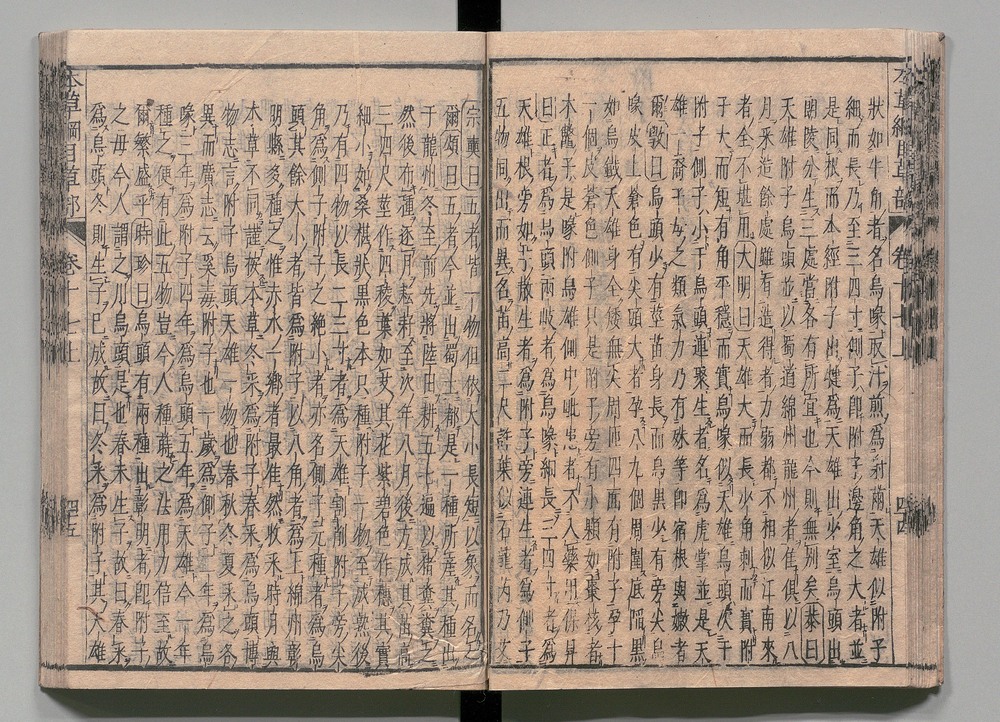 狀如牛角者名烏喙取汁煎爲射罔天雄似附子
細而長乃至三四寸側子即附子邊角之大者並
是同根而本經附子出犍爲天雄出少室烏頭出
朗陵分生三處當各有所宜也今則無別矣恭曰
天雄附子烏頭並以蜀道綿州龍州者佳俱以八
月采造餘處雖有造得者力弱都不相似江南來
者全不堪用大明曰天雄大而長少角刺而實附
子大而短有角平穩而實烏喙似天雄烏頭次于
附子側子小于烏頭連聚生者名爲虎掌並是天
雄一裔子母之類氣力乃有殊等即宿根與嫩者
爾斅曰烏頭少有莖苗身長而烏黑少有旁尖烏
喙皮上蒼色有尖頭大者孕八九個周圍底陷黑
如烏鐵天雄身全矮無尖周匝四面有附子孕十
一個皮蒼色側子只是附子旁有小顆如棗核者
木鱉子是喙附烏雄側中毗患者不入藥用保昇
曰正者爲烏頭兩歧者爲烏喙細長三四寸者爲
天雄根旁如芋散生者爲附子旁連生者爲側子
五物同出而異名苗高二尺許葉似石龍芮及艾
宗奭曰五者皆一物但依大小長短以象而名之
爾頌曰五者今並出蜀土都是一種所產其種出
于龍州冬至前先將陸田耕五七遍以豬糞糞之
然後布種逐月耘耔至次年八月後方成其苗高
三四尺莖作四稜葉如艾其花紫碧色作穗其實
細小如桑椹狀黑色本只種附子一物至成熟後
乃有四物以長二三寸者爲天雄割削附子旁尖
角爲側子附子之絕小者亦名側子元種者爲烏
頭其餘大小者皆爲附子以八角者爲上綿州彰
明縣多種之惟赤水一鄉者最佳然收采時月與
本草不同謹按本草冬采爲附子春采爲烏頭博
物志言附子烏頭天雄一物也春秋冬夏采之各
異而廣志云奚毒附子也一歲爲側子二年爲烏
喙三年爲附子四年爲烏頭五年爲天雄今一年
種之便有此五物豈今人種蒔之法用力倍至故
爾繁盛乎時珍曰烏頭有兩種出彰明者即附子
之母今人謂之川烏頭是也春末生子故曰春采
爲烏頭冬則生子已成故曰冬采爲附子其天雄
本草綱目草部 卷十七上 四五